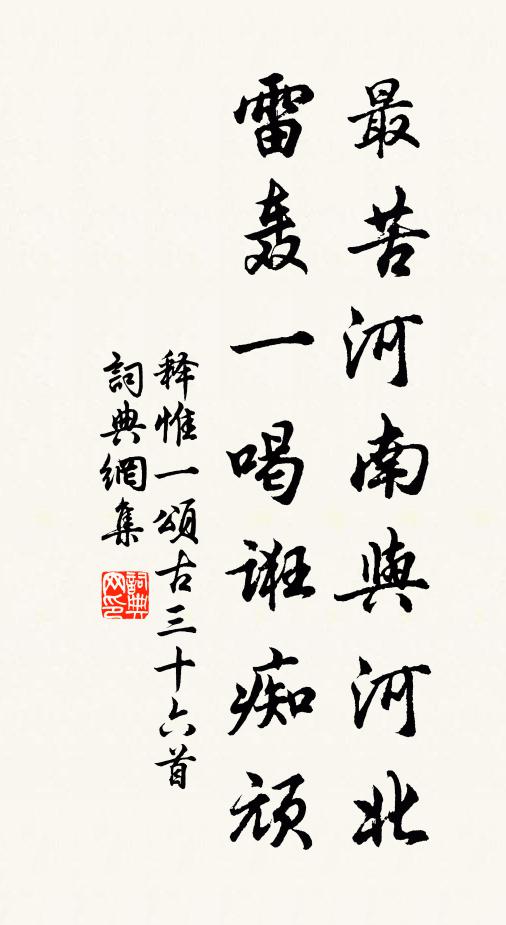 最苦河南與河北
雷轰一喝誑痴頑
释惟一頌古三十六首
詞典網集
詞典网印